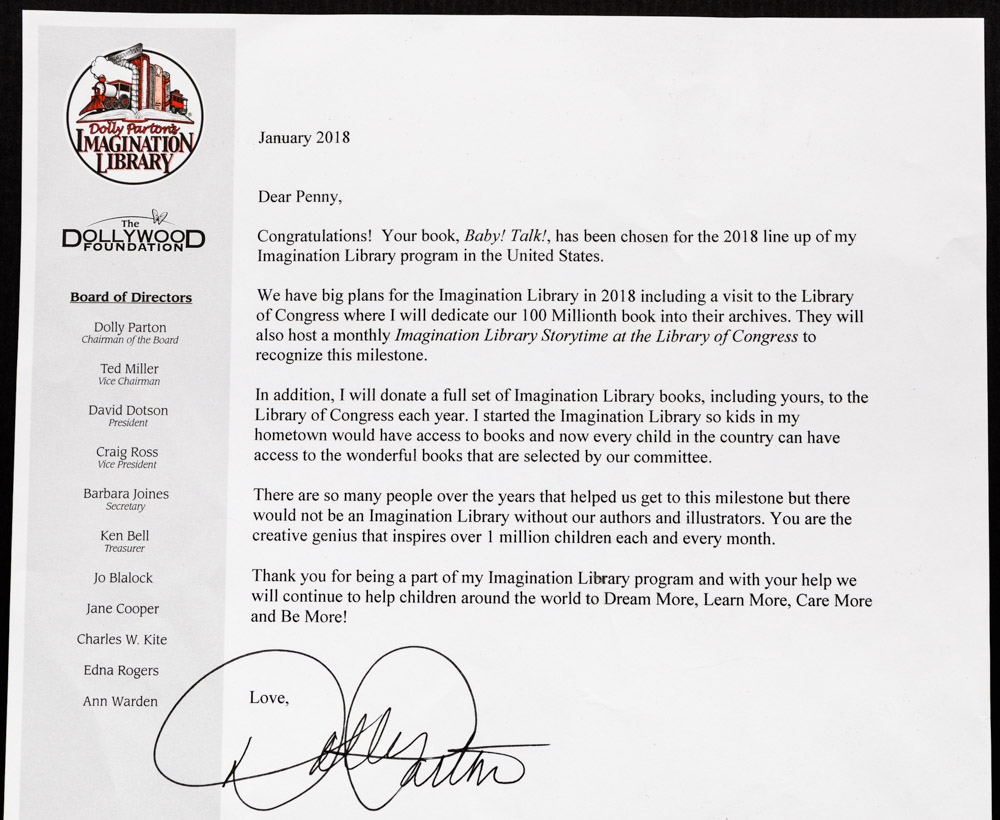 Dolly Parton's
IMAGINATION
LIBRARY
The
DOLLYWOOD
FOUNDATION
Board of Directors
Dolly Parton
Chairman of the Board
Ted Miller
Vice Chairman
David Dotson
President
Craig Ross
Vice President
Barbara Joines
Secretary
Ken Bell
Treasurer
Jo Blalock
Jane Cooper
Charles W. Kite
Edna Rogers
Ann Warden
January 2018
Dear Penny,
Congratulations! Your book, Baby! Talk!, has been chosen for the 2018 line up of my
Imagination Library program in the United States.
We have big plans for the Imagination Library in 2018 including a visit to the Library
of Congress where I will dedicate our 100 Millionth book into their archives. They will
also host a monthly Imagination Library Storytime at the Library of Congress to
recognize this milestone.
In addition, I will donate a full set of Imagination Library books, including yours, to the
Library of Congress each year. I started the Imagination Library so kids in my
hometown would have access to books and now every child in the country can have
access to the wonderful books that are selected by our committee.
There are so many people over the years that helped us get to this milestone but there
would not be an Imagination Library without our authors and illustrators. You are the
creative genius that inspires over 1 million children each and every month.
Thank you for being a part of my Imagination Library program and with your help we
will continue to help children around the world to Dream More, Learn More, Care More
and Be More!
Love,
Dolly Parton